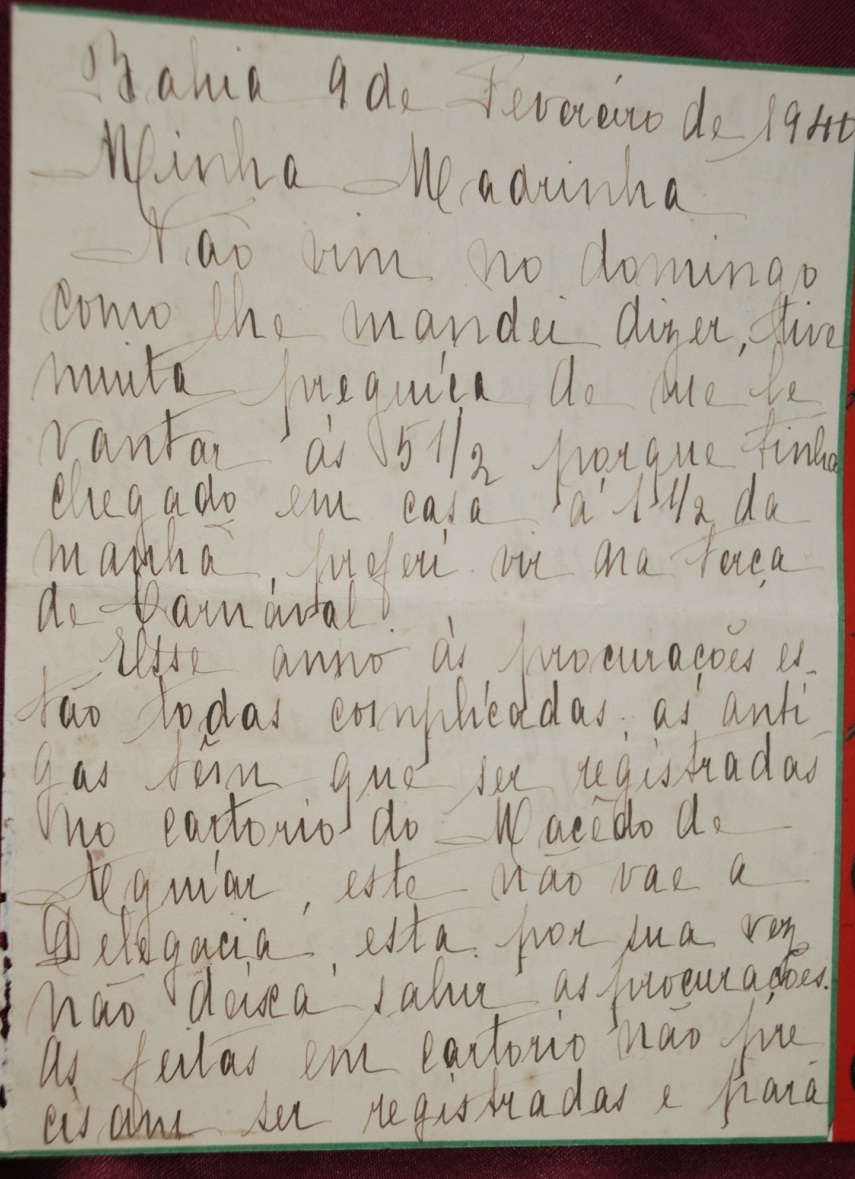 Bahia 9 de Fevereiro de 1940
Minha Madrinha
Não vim no domingo
como lhe mandei dizer, tive
muita preguiça de me le
vantar ás 5 1/2 porque tinha
chegado em casa á 1 1/2 da
manhã, preferi vir na terça
de Carnaval.
Esse anno ás procurações es-
tão todas complicadas. as anti
gas têm que ser registradas
no cartorio do Macêdo de
Aguiar, este não vae a
Delegacia, esta por sua vez
não deixa sahir as procurações.
As feitas em cartorio não pre
cisam ser registradas e pará